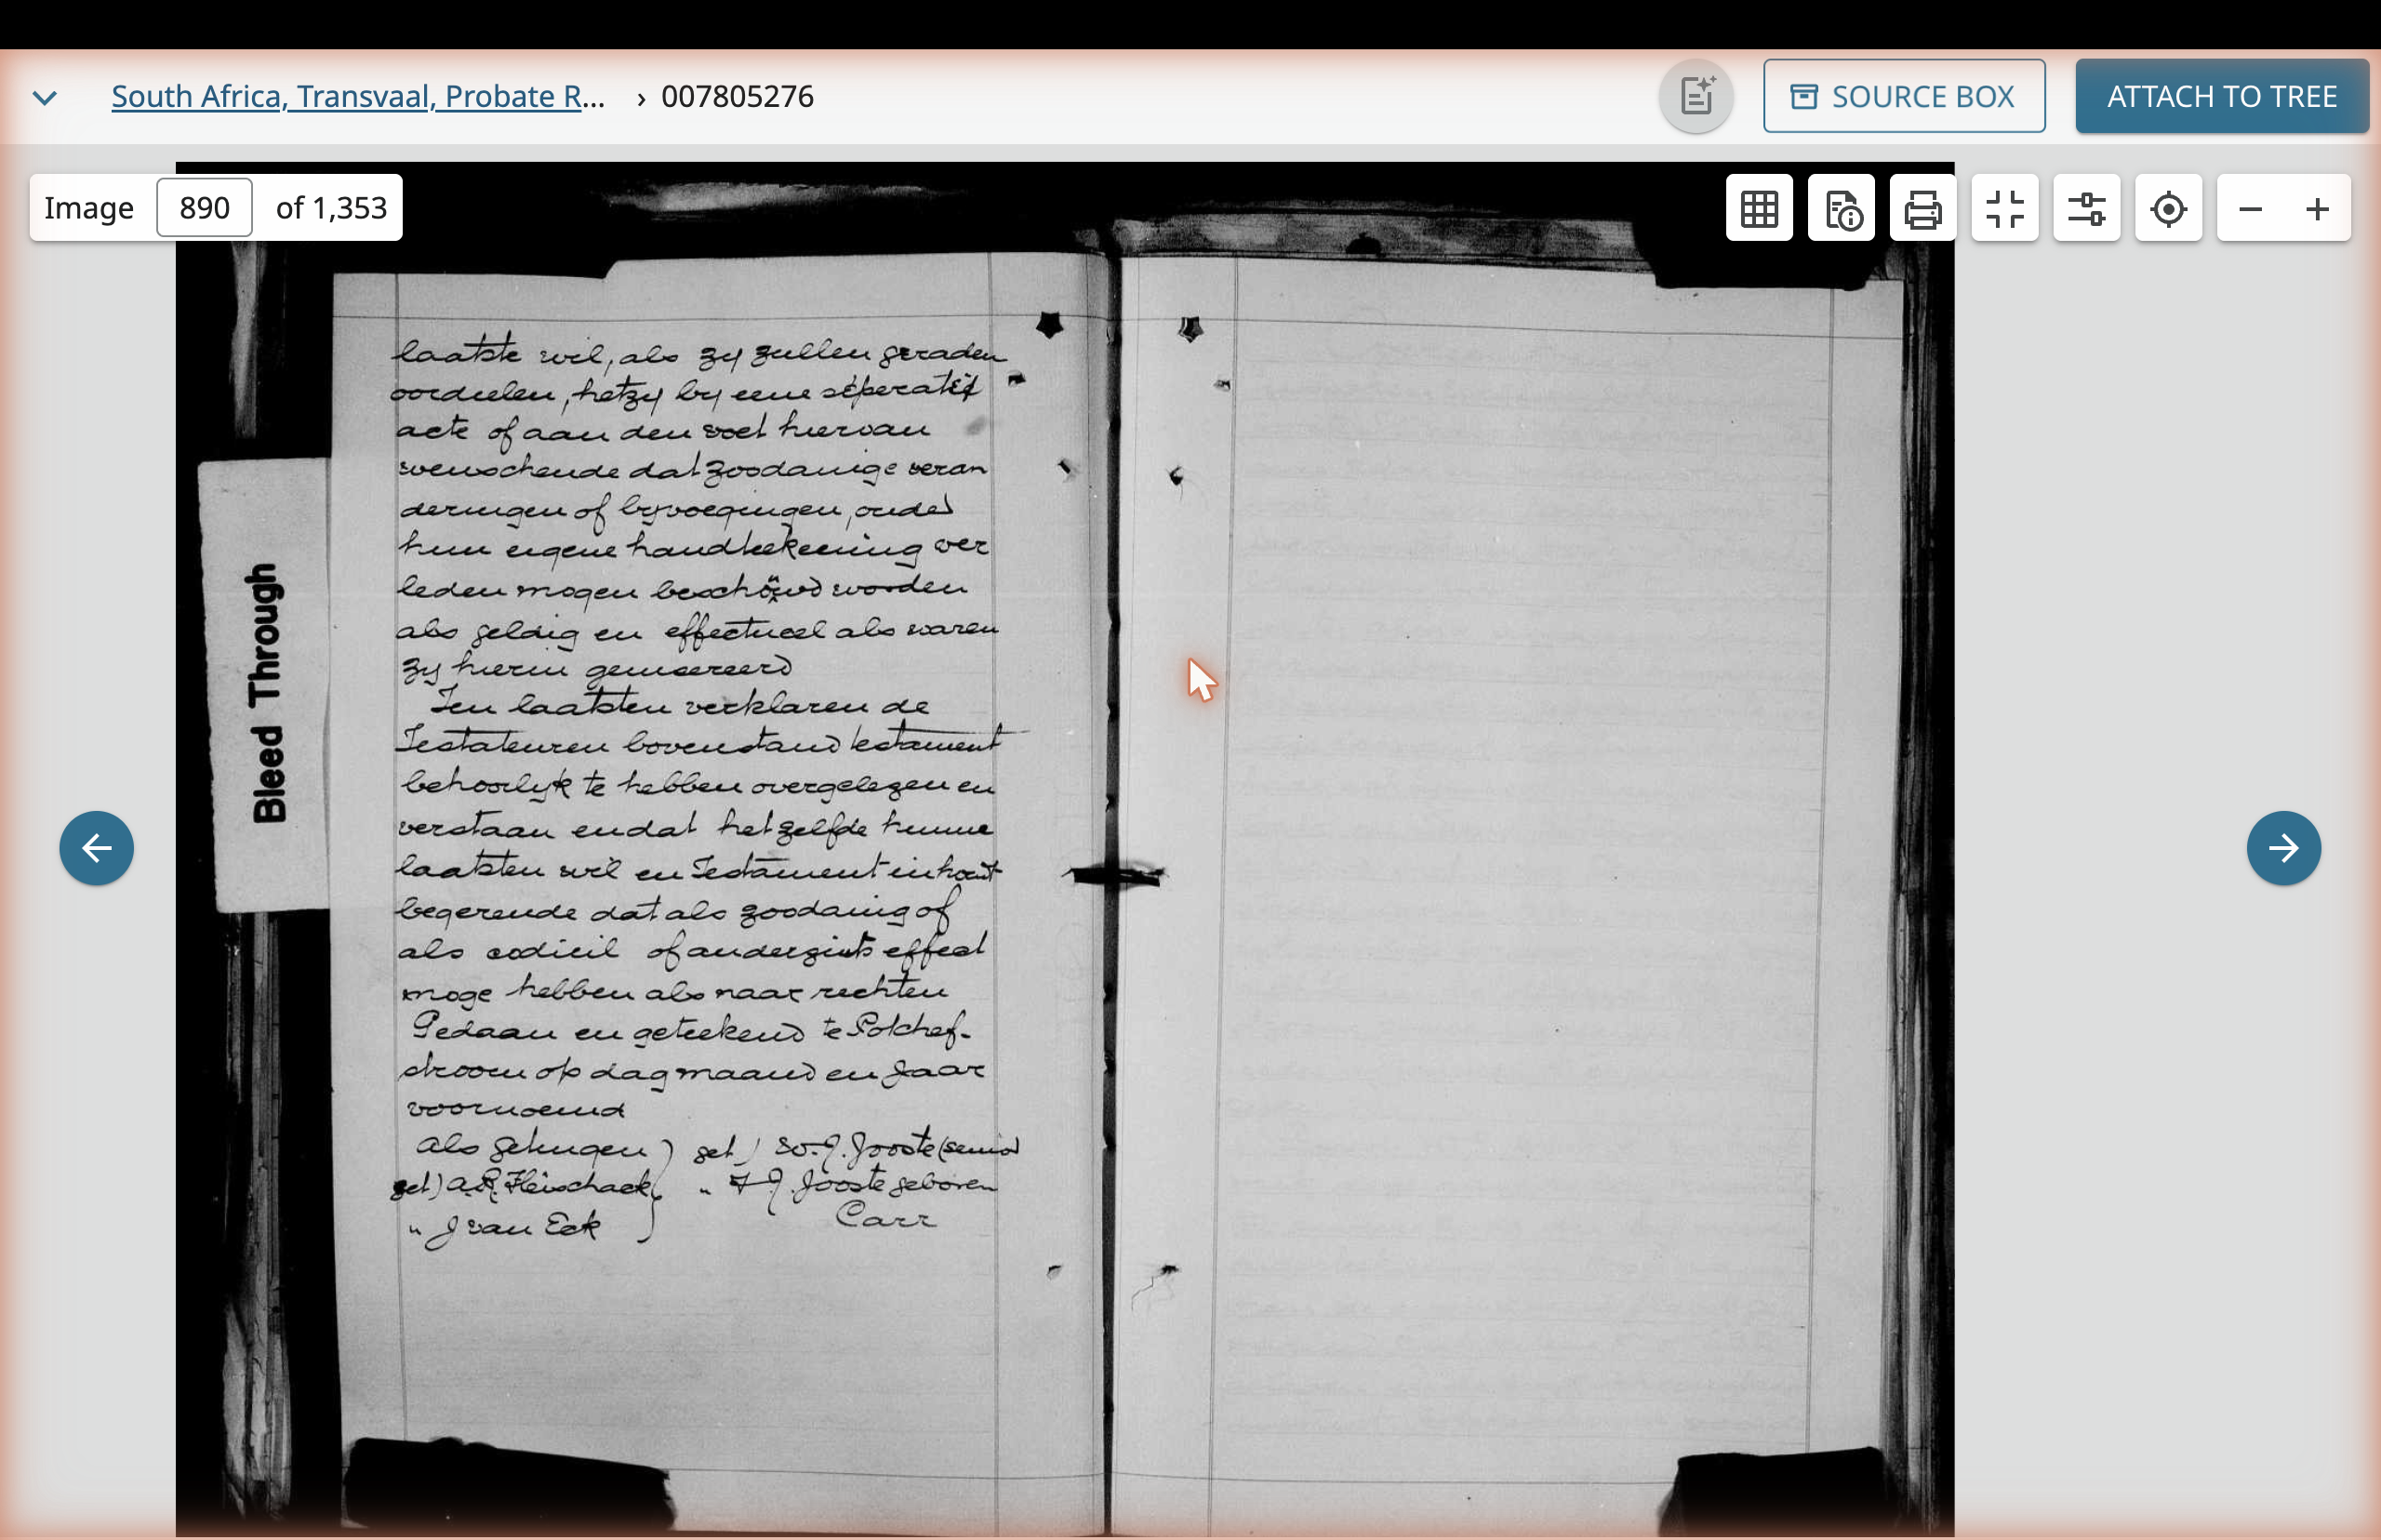 South Africa, Transvaal, Probate R... › 007805276
SOURCE BOX
ATTACH TO TREE
Image 890 of 1,353
Bleed Through
laatste wil, als zy zullen geraden
oordeelen, hetzy by eene seperatie
acte of aan den voet hiervan
wenschende dat zoodanige veran
deringen of byvoegingen, onder
hun eigene handteekening ver
leden mogen beschouwd worden
als geldig en effectueel als waren
zy hierin geinsereerd
Ten laatsten verklaren de
Testateuren bovenstaand testament
behoorlyk te hebben overgelezen en
verstaan en dat hetzelfde hunne
laatsten wil en Testament inhoudt
begerende dat als zoodanig of
als codicil of anderzints effect
moge hebben als naar rechten
Gedaan en geteekend te Potchef-
stroom op dag maand en Jaar
voornoemd
als getuigen) get) W. J. Jooste (senior
get) A. R. Fleischack " J. Jooste geboren
" J van Eck Carr